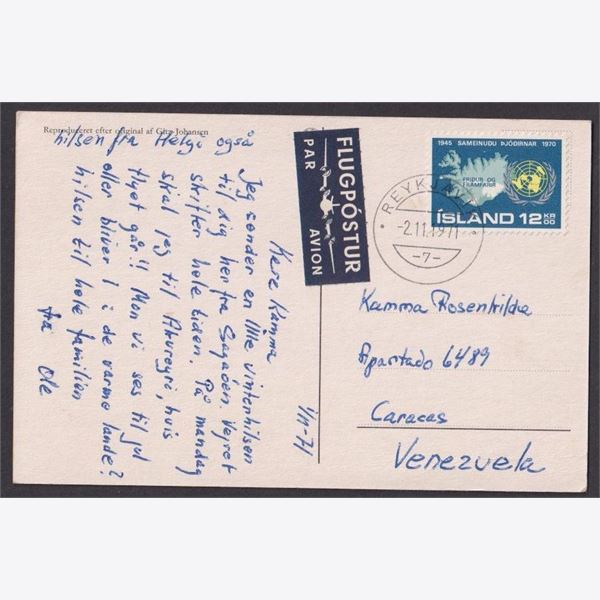 Reproduceret efter original af Gitz-Johansen
hilsen fra Helgi også
1/11-71
Kære Kamma
Jeg sender en lille vinterhilsen
til dig her fra Sagaøen. Vejret
skifter hele tiden. På mandag
skal jeg til Akureyri, hvis
flyet går!! Mon vi ses til jul
eller bliver I i de varme lande?
hilsen til hele familien
fra Ole
FLUGPÓSTUR
PAR AVION
1945 SAMEINUÐU ÞJÓÐIRNAR 1970
FRIÐUR OG
FRAMFARIR
ÍSLAND 12 KR
00
REYKJAVÍK
-2.11.1971
-7-
Kamma Rosenkilde
Apartado 6489
Caracas
Venezuela